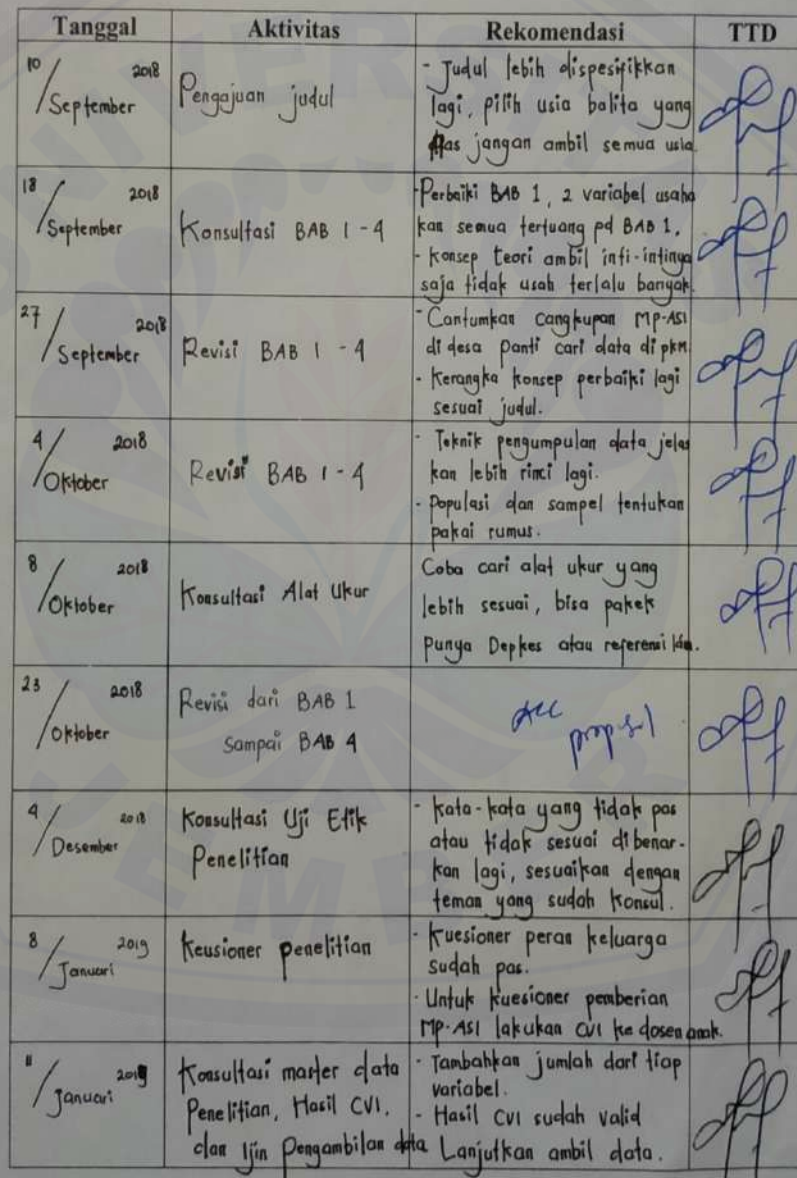 Tanggal Aktivitas Rekomendasi TTD
10 / September 2018
Pengajuan judul
- Judul lebih dispesifikkan
lagi, pilih usia balita yang
pas jangan ambil semua usia.
18 / September 2018
Konsultasi BAB 1 - 4
- Perbaiki BAB 1, 2 variabel usaha
kan semua tertuang pd BAB 1.
- konsep teori ambil inti-intinya
saja tidak usah terlalu banyak.
27 / September 2018
Revisi BAB 1 - 4
- Cantumkan cangkupan MP-ASI
di desa panti cari data di pkm
- Kerangka konsep perbaiki lagi
sesuai judul.
4 / Oktober 2018
Revisi BAB 1 - 4
- Teknik pengumpulan data jelas
kan lebih rinci lagi.
- Populasi dan sampel tentukan
pakai rumus.
8 / Oktober 2018
Konsultasi Alat Ukur
Coba cari alat ukur yang
lebih sesuai, bisa pakek
punya Depkes atau referensi lain.
23 / Oktober 2018
Revisi dari BAB 1
Sampai BAB 4
Acc
proposal
4 / Desember 2018
Konsultasi Uji Etik
Penelitian
- Kata-kata yang tidak pas
atau tidak sesuai dibenar-
kan lagi, sesuaikan dengan
teman yang sudah konsul.
8 / Januari 2019
Keusioner penelitian
- Kuesioner peran keluarga
sudah pas.
- Untuk kuesioner pemberian
MP-ASI lakukan CVI ke dosen anak.
11 / Januari 2019
Konsultasi master data
Penelitian, Hasil CVI,
dan Ijin Pengambilan data
- Tambahkan jumlah dari tiap
variabel.
- Hasil CVI sudah valid
Lanjutkan ambil data.